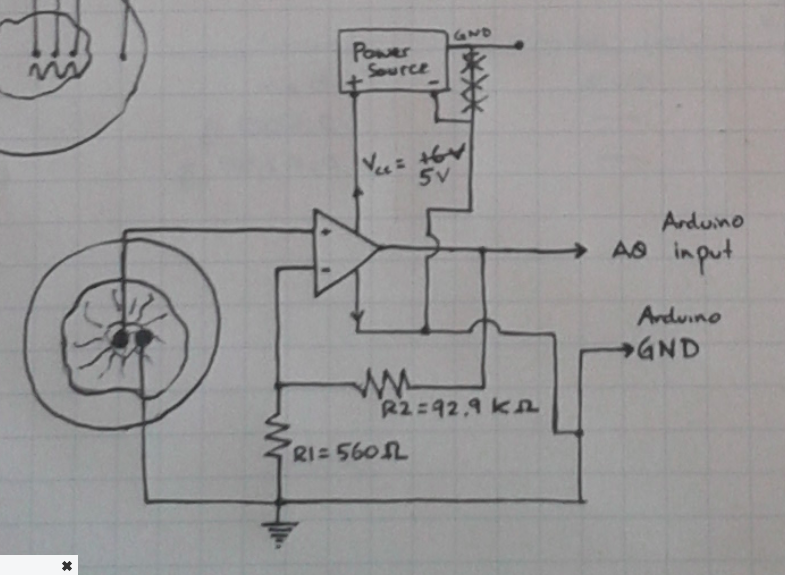 GND
Power
Source
+ -
Vcc = +6V
5V
+
-
Arduino
A0 input
Arduino
GND
R2=92.9 KΩ
R1=560Ω